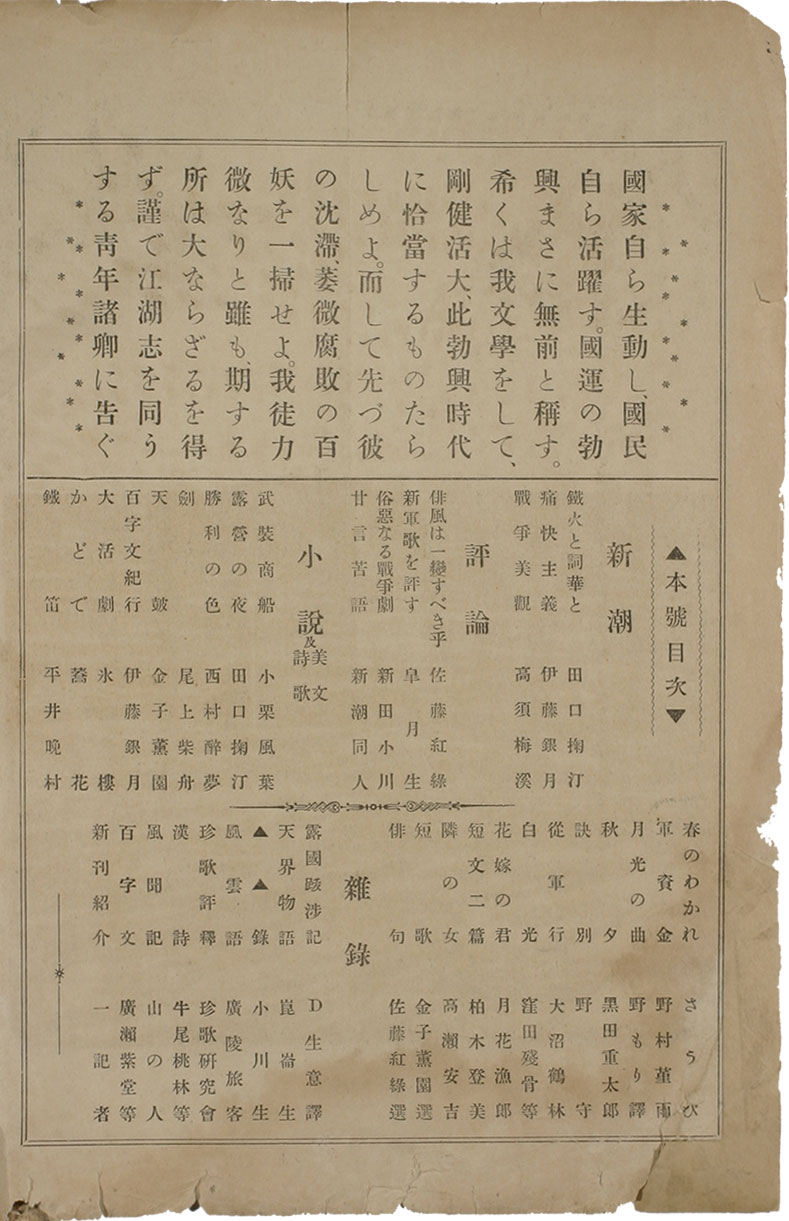 國家自ら生動し、國民
自ら活躍す。國運の勃
興まさに無前と稱す。
希くは我文學をして、
剛健活大、此勃興時代
に恰當するものたら
しめよ。而して先づ彼
の沈滯、萎微腐敗の百
妖を一掃せよ。我徒力
微なりと雖も、期する
所は大ならざるを得
ず。謹で江湖志を同う
する靑年諸卿に告ぐ
▲本號目次▼
新潮
鐵火と詞華と 田口掬汀
痛快主義 伊藤銀月
戰爭美觀 高須梅溪
評論
俳風は一變すべき乎 佐藤紅綠
新軍歌を評す 皐月生
俗惡なる戰爭劇 新田小川
甘言苦語 新潮同人
小說及美文詩歌
武裝商船 小栗風葉
露營の夜 田口掬汀
勝利の色 西村醉夢
劍 尾上柴舟
天鼓 金子薰園
百字文紀行 伊藤銀月
大活劇 氷樓
かどで 蕎花
鐵笛 平井晚村
春のわかれ さうび
軍資金 野村菫雨
月光の曲 野もり譯
秋夕 黑田重太郎
訣別 野守
從軍行 大沼鶴林
白光 窪田殘骨等
花嫁の君 月花漁郎
短文二篇 柏木登美
隣の女 高瀨安吉
短歌 金子薰園選
俳句 佐藤紅綠選
雜錄
露國跋涉記 D生意譯
天界物語 崑崙生
▲▲錄 小川生
風雲語 廣陵旅客
珍歌評釋 珍歌硏究會
漢詩 牛尾桃林等
風聞記 山の人
百字文 廣瀨紫堂等
新刊紹介 一記者